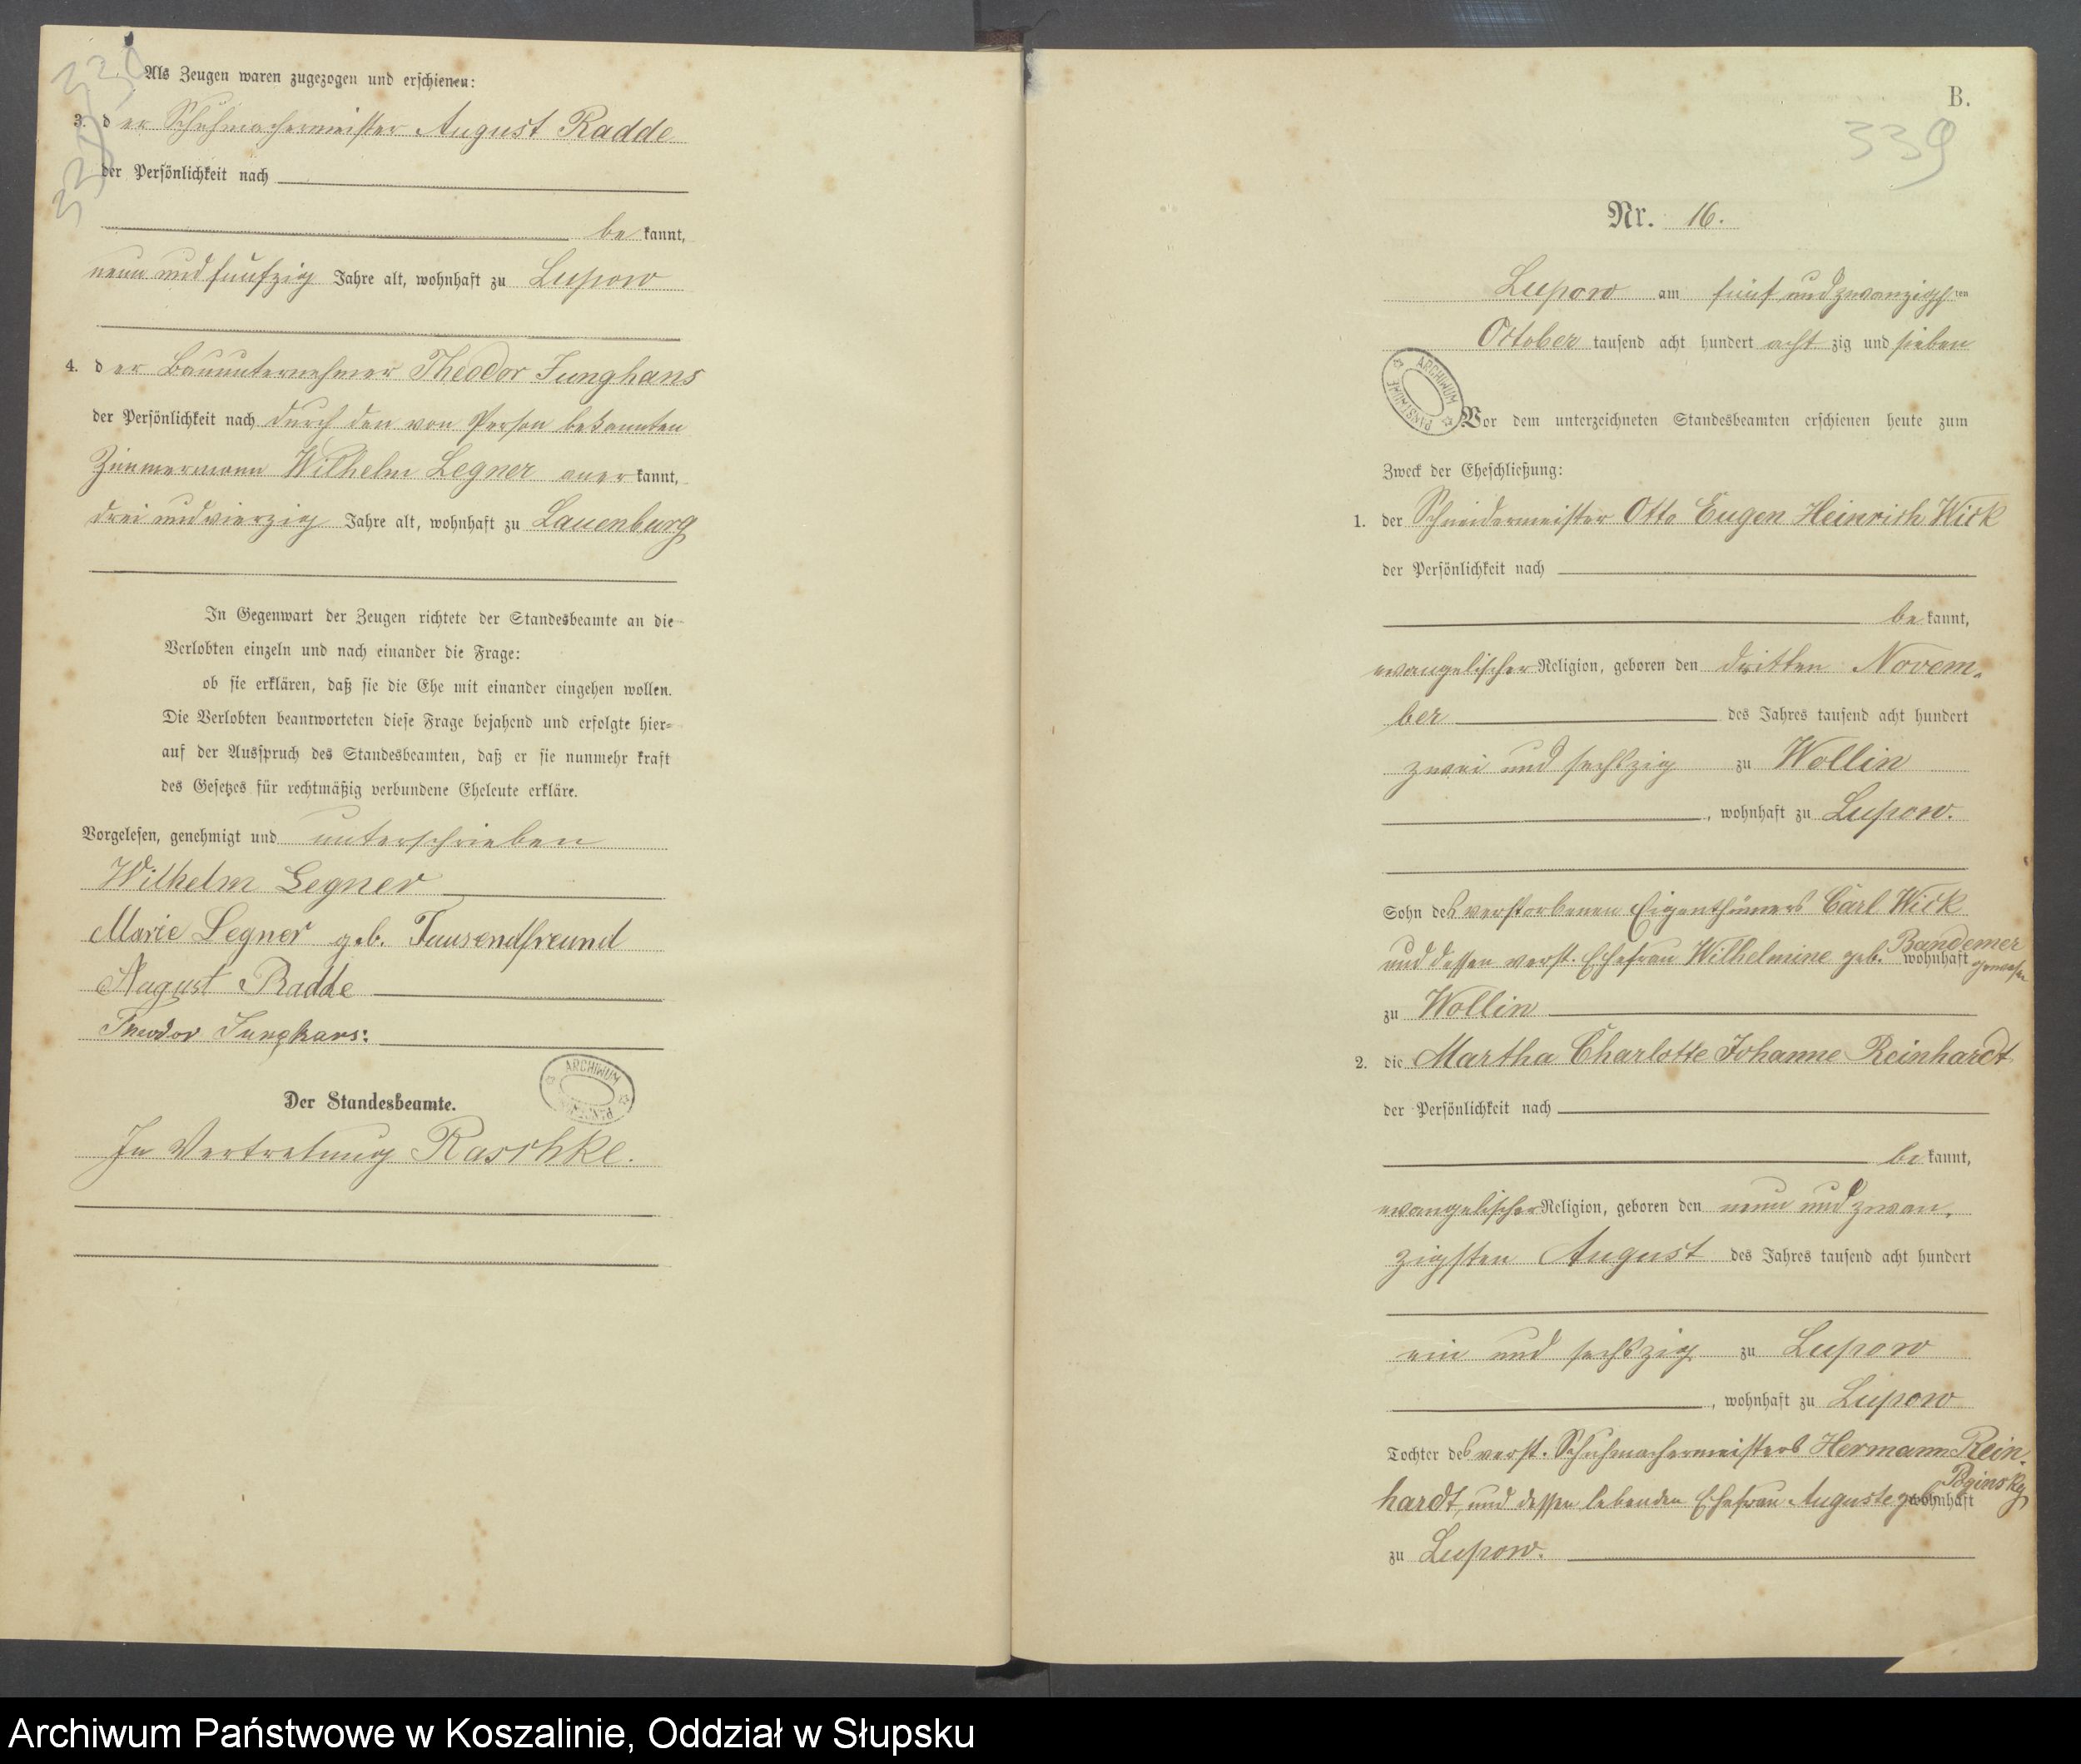 Als Zeugen waren zugezogen und erschienen:
3. der Schuhmachermeister August Radde
der Persönlichkeit nach
bekannt,
neun und fünfzig Jahre alt, wohnhaft zu Lupow
4. der Bauunternehmer Theodor Junghans
der Persönlichkeit nach durch den von Person bekannten
Zimmermann Wilhelm Legner anerkannt,
drei und vierzig Jahre alt, wohnhaft zu Lauenburg
In Gegenwart der Zeugen richtete der Standesbeamte an die
Verlobten einzeln und nach einander die Frage:
ob sie erklären, daß sie die Ehe mit einander eingehen wollen.
Die Verlobten beantworteten diese Frage bejahend und erfolgte hier-
auf der Ausspruch des Standesbeamten, daß er sie nunmehr kraft
des Gesetzes für rechtmäßig verbundene Eheleute erkläre.
Vorgelesen, genehmigt und unterschrieben
Wilhelm Legner
Marie Legner geb. Tausendfreund
August Radde
Theodor Junghans:
ARCHIWUM
Der Standesbeamte.
In Vertretung Raschke.
B.
339
Nr. 16.
Lupow am fünf und zwanzigsten
October tausend acht hundert achtzig und sieben
ARCHIWUM PAŃSTWOWE
Vor dem unterzeichneten Standesbeamten erschienen heute zum
Zweck der Eheschließung:
1. der Schneidermeister Otto Eugen Heinrich Wick
der Persönlichkeit nach
bekannt,
evangelischer Religion, geboren den dritten Novem-
ber des Jahres tausend acht hundert
zwei und sechszig zu Wollin
, wohnhaft zu Lupow.
Sohn des verstorbenen Eigenthümers Carl Wick
und dessen verst. Ehefrau Wilhelmine geb. Bandemer wohnhaft gewesen
zu Wollin
2. die Martha Charlotte Johanne Reinhardt
der Persönlichkeit nach
bekannt,
evangelischer Religion, geboren den neun und zwan-
zigsten August des Jahres tausend acht hundert
ein und sechszig zu Lupow
, wohnhaft zu Lupow
Tochter des verst. Schuhmachermeisters Hermann Rein-
hardt, und dessen lebenden Ehefrau Auguste geb. Poginsky wohnhaft
zu Lupow.
Archiwum Państwowe w Koszalinie, Oddział w Słupsku